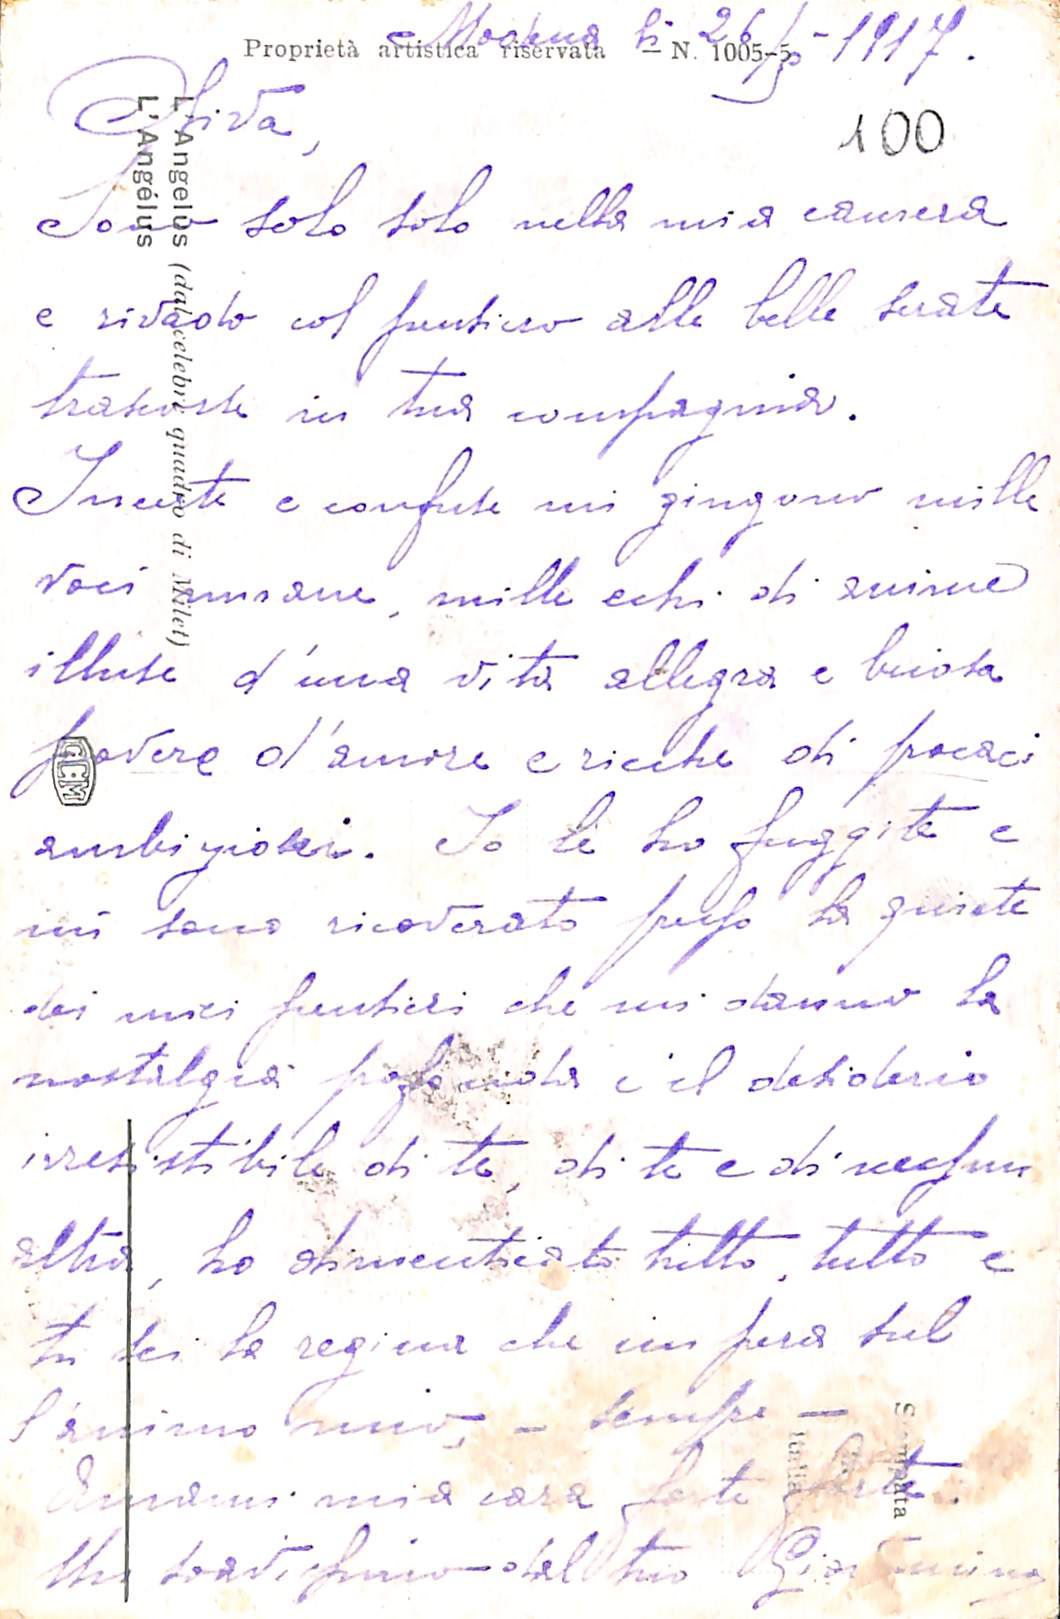 Modena li 26/5-1917.
Proprietà artistica riservata — N. 1005-5
100
L'Angelus (dal celebre quadro di Milet)
L'Angélus
Sono solo solo nella mia camera
e rivado col pensiero alle belle serate
trascorse in tua compagnia.
Incerte e confuse mi giungono mille
voci umane, mille echi di anime
illuse d'una vita allegra e briosa
povere d'amore e ricche di procaci
ambizioni. Io le ho fuggite e
mi sono ricoverato presso la quiete
dei miei pensieri che mi danno la
nostalgia profonda e il desiderio
irresistibile di te, di te e di nessun
altra, ho dimenticato tutto, tutto e
tu sei la regina che impera sul
l'animo mio, - sempre -
Amami mia cara forte forte.
Un soavissimo dal tuo
GCM
Stampata
Italia